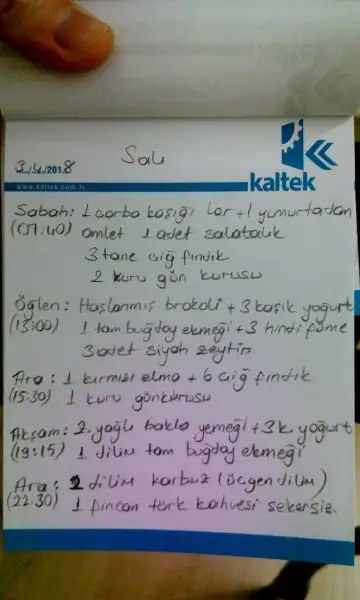 3/4/2018
Salı
www.kaltek.com.tr
kaltek
Sabah: 1 çorba kaşığı lor + 1 yumurtadan
(07:40) omlet 1 adet salatalık
3 tane çiğ fındık
2 kuru gün kurusu
Öğlen: Haşlanmış brokoli + 3 kaşık yoğurt
(13:00) 1 tam buğday ekmeği + 3 hindi füme
3 adet siyah zeytin
Ara: 1 kırmızı elma + 6 çiğ fındık
(15:30) 1 kuru günkurusu
Akşam: 2. yağlı bakla yemeği + 3 k. yoğurt
(19:15) 1 dilim tam buğday ekmeği
Ara: 2 dilim karbuz (üçgen dilim)
(22:30) 1 fincan türk kahvesi şekersiz.